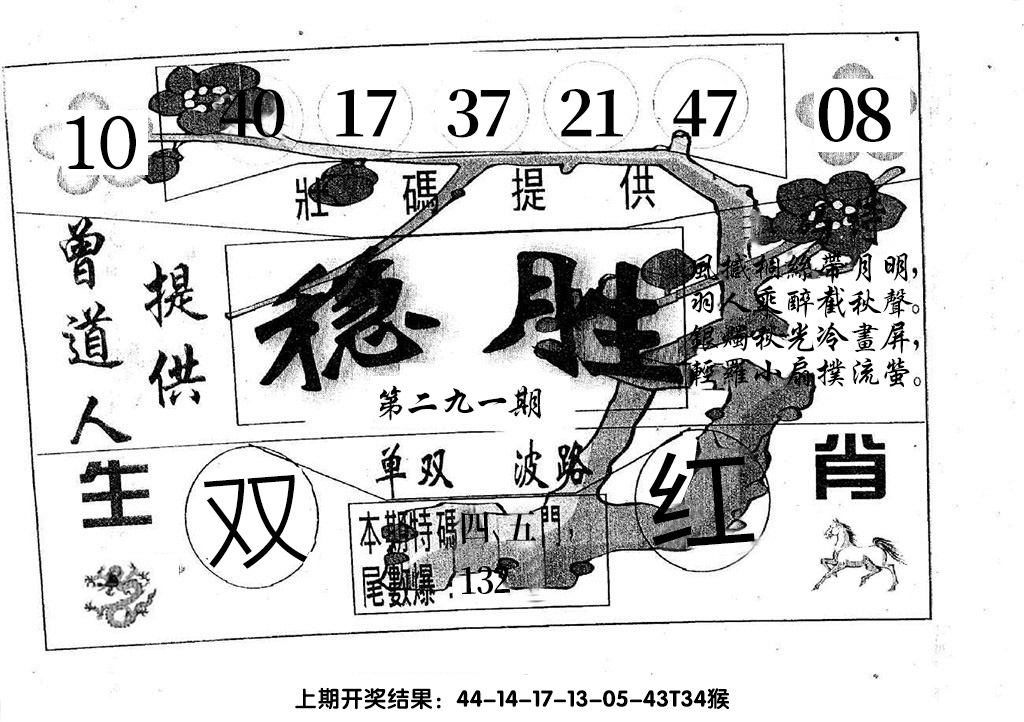 10 40 17 37 21 47 08
壯碼提供
曾道人
提供
稳胜
第二九一期
風撼梧絲帶月明，
羽人乘醉截秋聲。
銀燭秋光冷畫屏，
輕羅小扇撲流螢。
生肖
单双 波路
双 红
本期特碼四、五門，
尾數爆：132
上期开奖结果：44-14-17-13-05-43T34猴